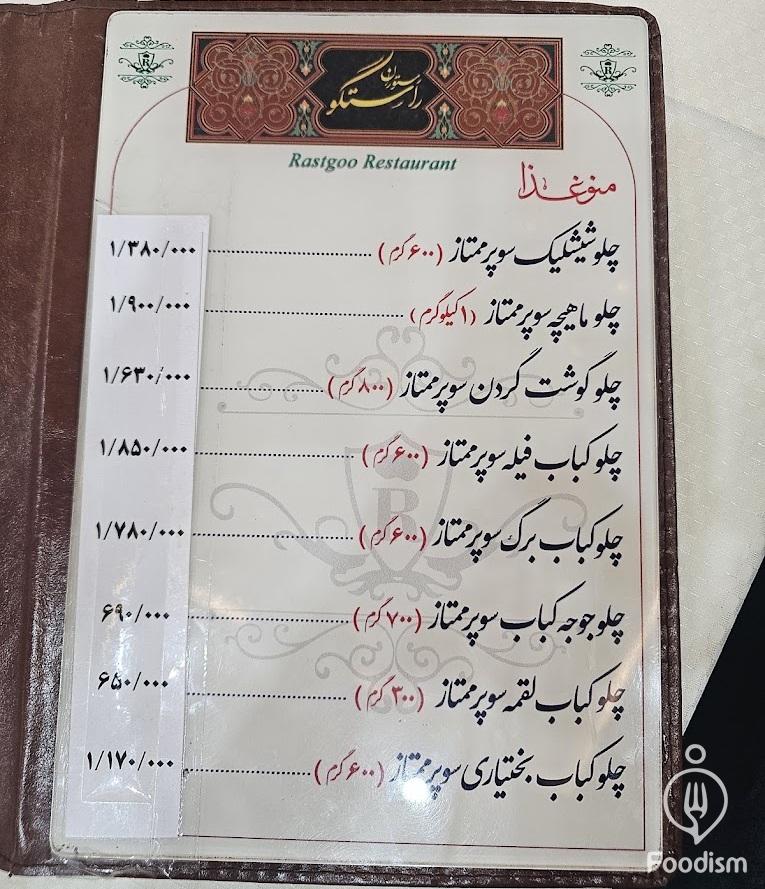 رستوران راستگو
Rastgoo Restaurant
منو غذا
چلو شیشلیک سوپر ممتاز (۶۰۰ گرم) ........ ۱/۳۸۰/۰۰۰
چلو ماهیچه سوپر ممتاز (۱ کیلوگرم) ........ ۱/۹۰۰/۰۰۰
چلو گوشت گردن سوپر ممتاز (۸۰۰ گرم) ........ ۱/۶۳۰/۰۰۰
چلو کباب فیله سوپر ممتاز (۶۰۰ گرم) ........ ۱/۸۵۰/۰۰۰
چلو کباب برگ سوپر ممتاز (۶۰۰ گرم) ........ ۱/۷۸۰/۰۰۰
چلو جوجه کباب سوپر ممتاز (۷۰۰ گرم) ........ ۶۹۰/۰۰۰
چلو کباب لقمه سوپر ممتاز (۳۰۰ گرم) ........ ۶۵۰/۰۰۰
چلو کباب بختیاری سوپر ممتاز (۶۰۰ گرم) ........ ۱/۱۷۰/۰۰۰
R
Foodism